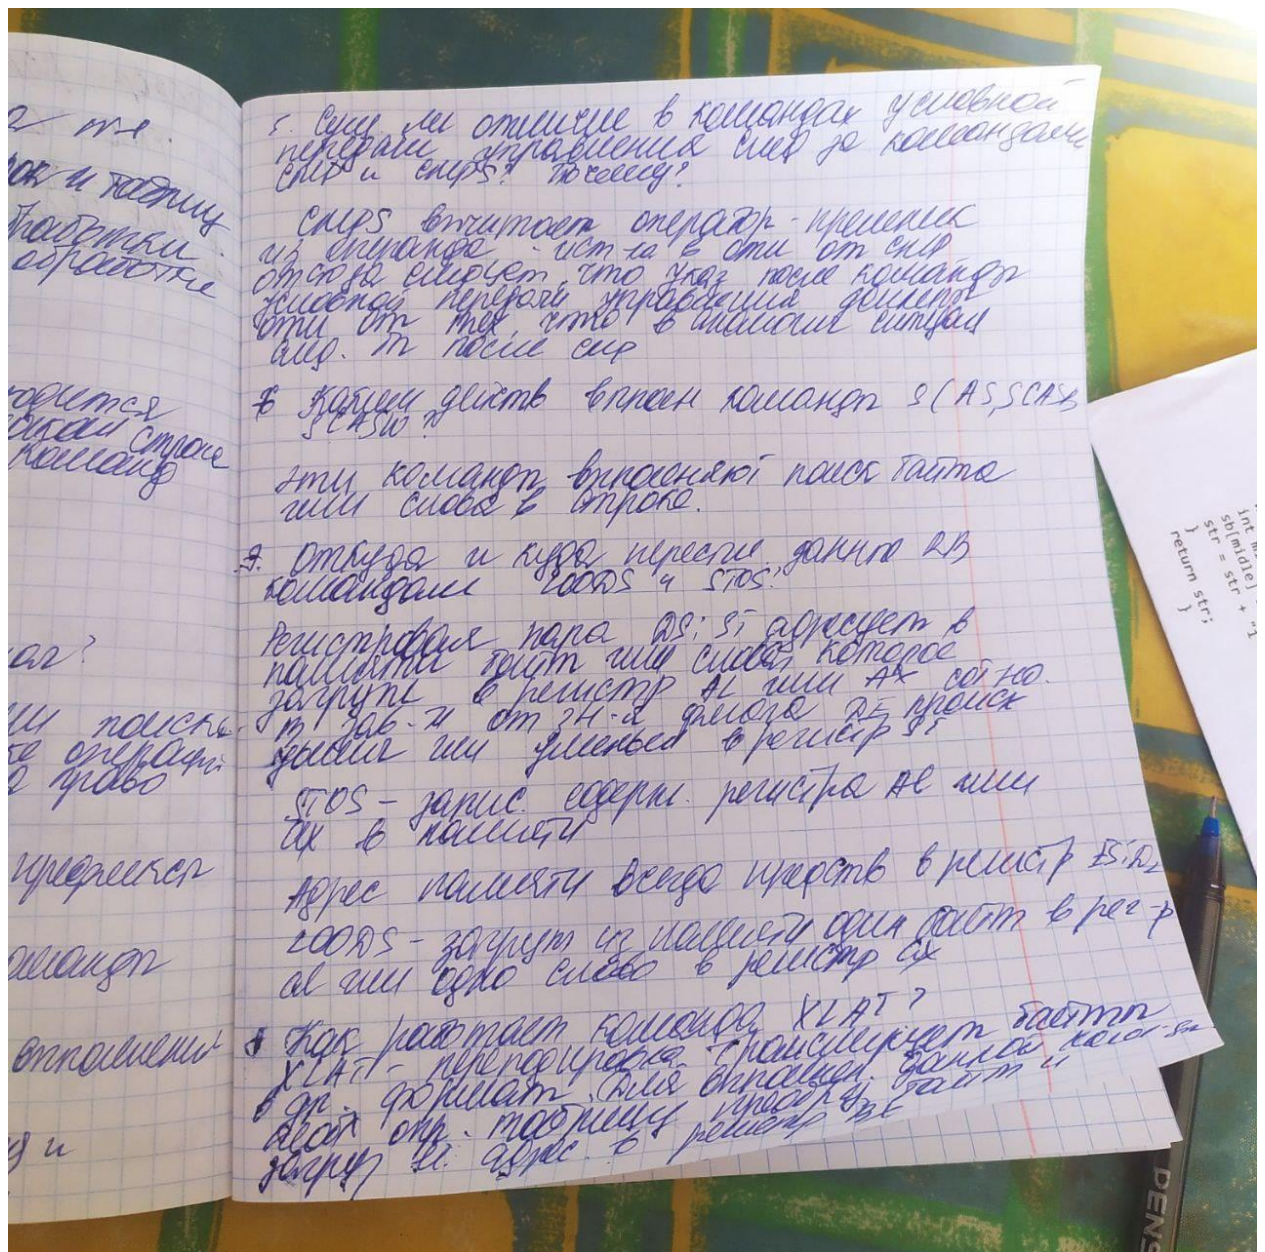 а же.
рок и таблиц
обработки
обработке
одится
строке
команд
поиска
операции
право
префиксы
команды
и
5. Сущ ли отличие в командах условной
передачи управления след за командами
cmp и cmps? Почему?
CMPS вычитает оператор-приемник
из операнда - ист-ка в отл от cmp
отсюда следует, что указ после команды
условной передачи управления должен
отл от тех, что в аналогич ситуац
после cmp
6 Какие действ выполн команды SCAS, SCASB
SCASW?
Эти команды выполняют поиск байта
или слова в строке.
7. Откуда и куда пересыл данные
командами LODS и STOS?
Регистровая пара DS:SI адресует в
памяти байт или слово, которое
загруж в регистр AL или AX соотно.
В зав-ти от зн-я флага DF происх
или уменьш в регистр SI
STOS - запис. содерж. регистра AL или
ax в памяти
Адрес памяти всегда предств в регистр ES:DI
LODS - загруж из памяти один байт в рег-р
al или одно слово в регистр ax
8 Как работает команда XLAT?
XLAT - перекодировка. Транслирует байты
в др. формат. Для выполнен. данной
опр. таблицу преобр. байт и
загруз адрес. в регистр
int
sb[midle]
str = str + "1
}
return str;
}
DENS